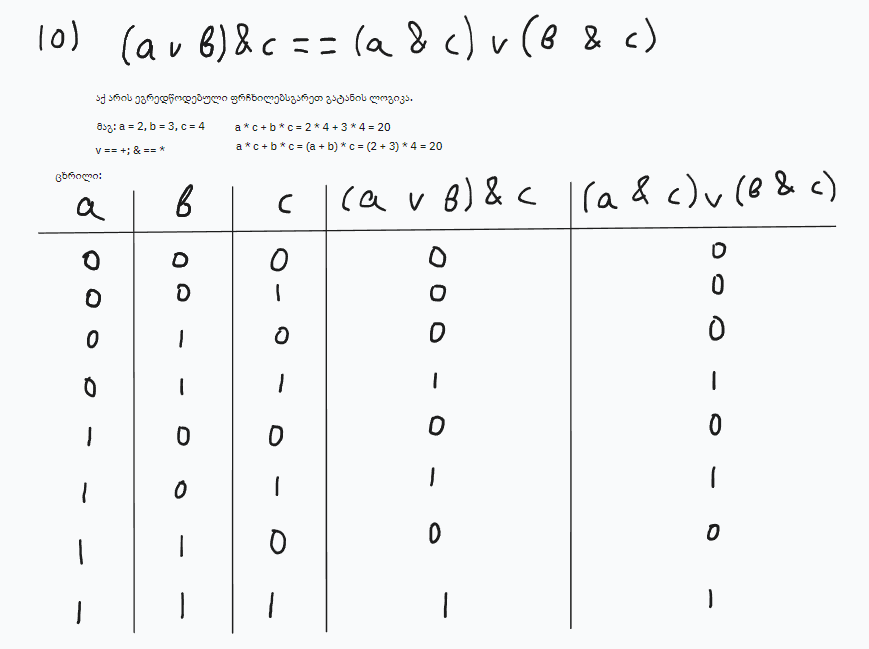 10) (a v b) & c == (a & c) v (b & c)
აქ არის ეგრედწოდებული ფრჩხილებსგარეთ გატანის ლოგიკა.
მაგ: a = 2, b = 3, c = 4 a * c + b * c = 2 * 4 + 3 * 4 = 20
v == +; & == * a * c + b * c = (a + b) * c = (2 + 3) * 4 = 20
ცხრილი:
a b c (a v b) & c (a & c) v (b & c)
0 0 0 0 0
0 0 1 0 0
0 1 0 0 0
0 1 1 1 1
1 0 0 0 0
1 0 1 1 1
1 1 0 0 0
1 1 1 1 1